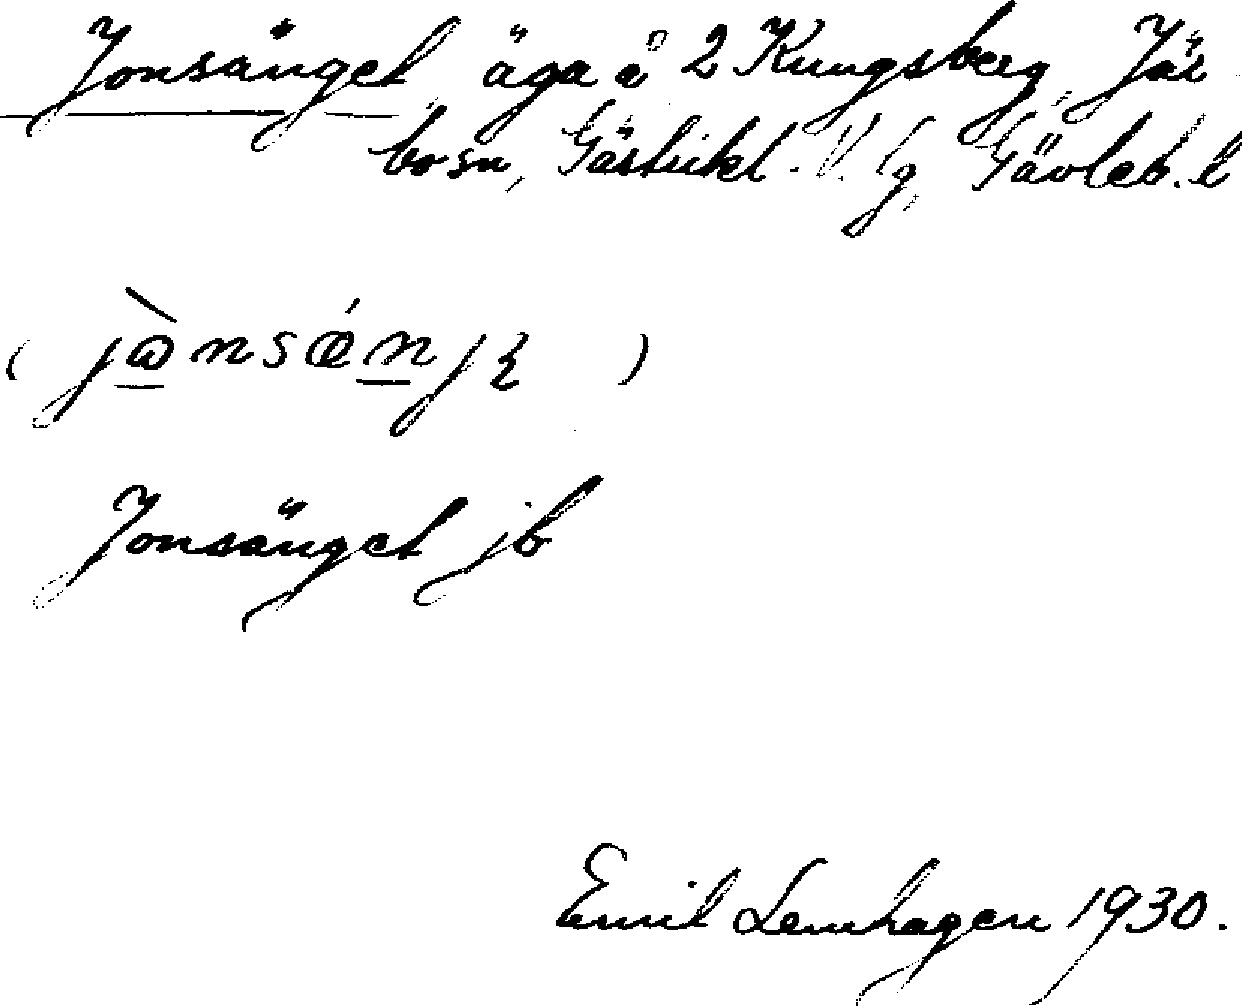 Jonsänget äga å 2 Kungsberg, Jär
bo sn, Gästrikl. V. lg, Gävleb. l
( jὼnsǽnjξ )
Jonsänget jb
Emil Lenhagen 1930.